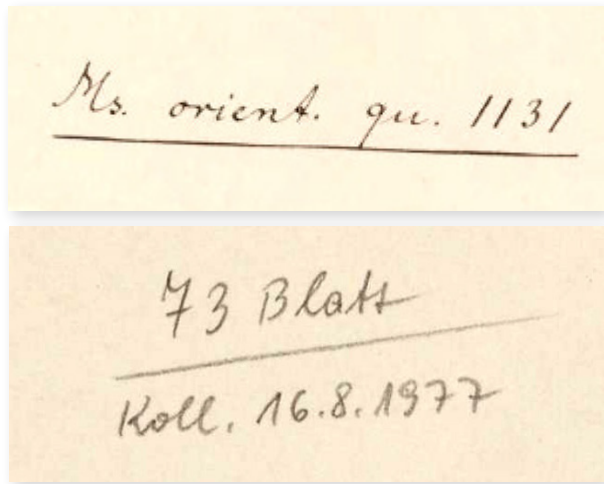 Ms. orient. qu. 1131
73 Blatt
Koll. 16.8.1977